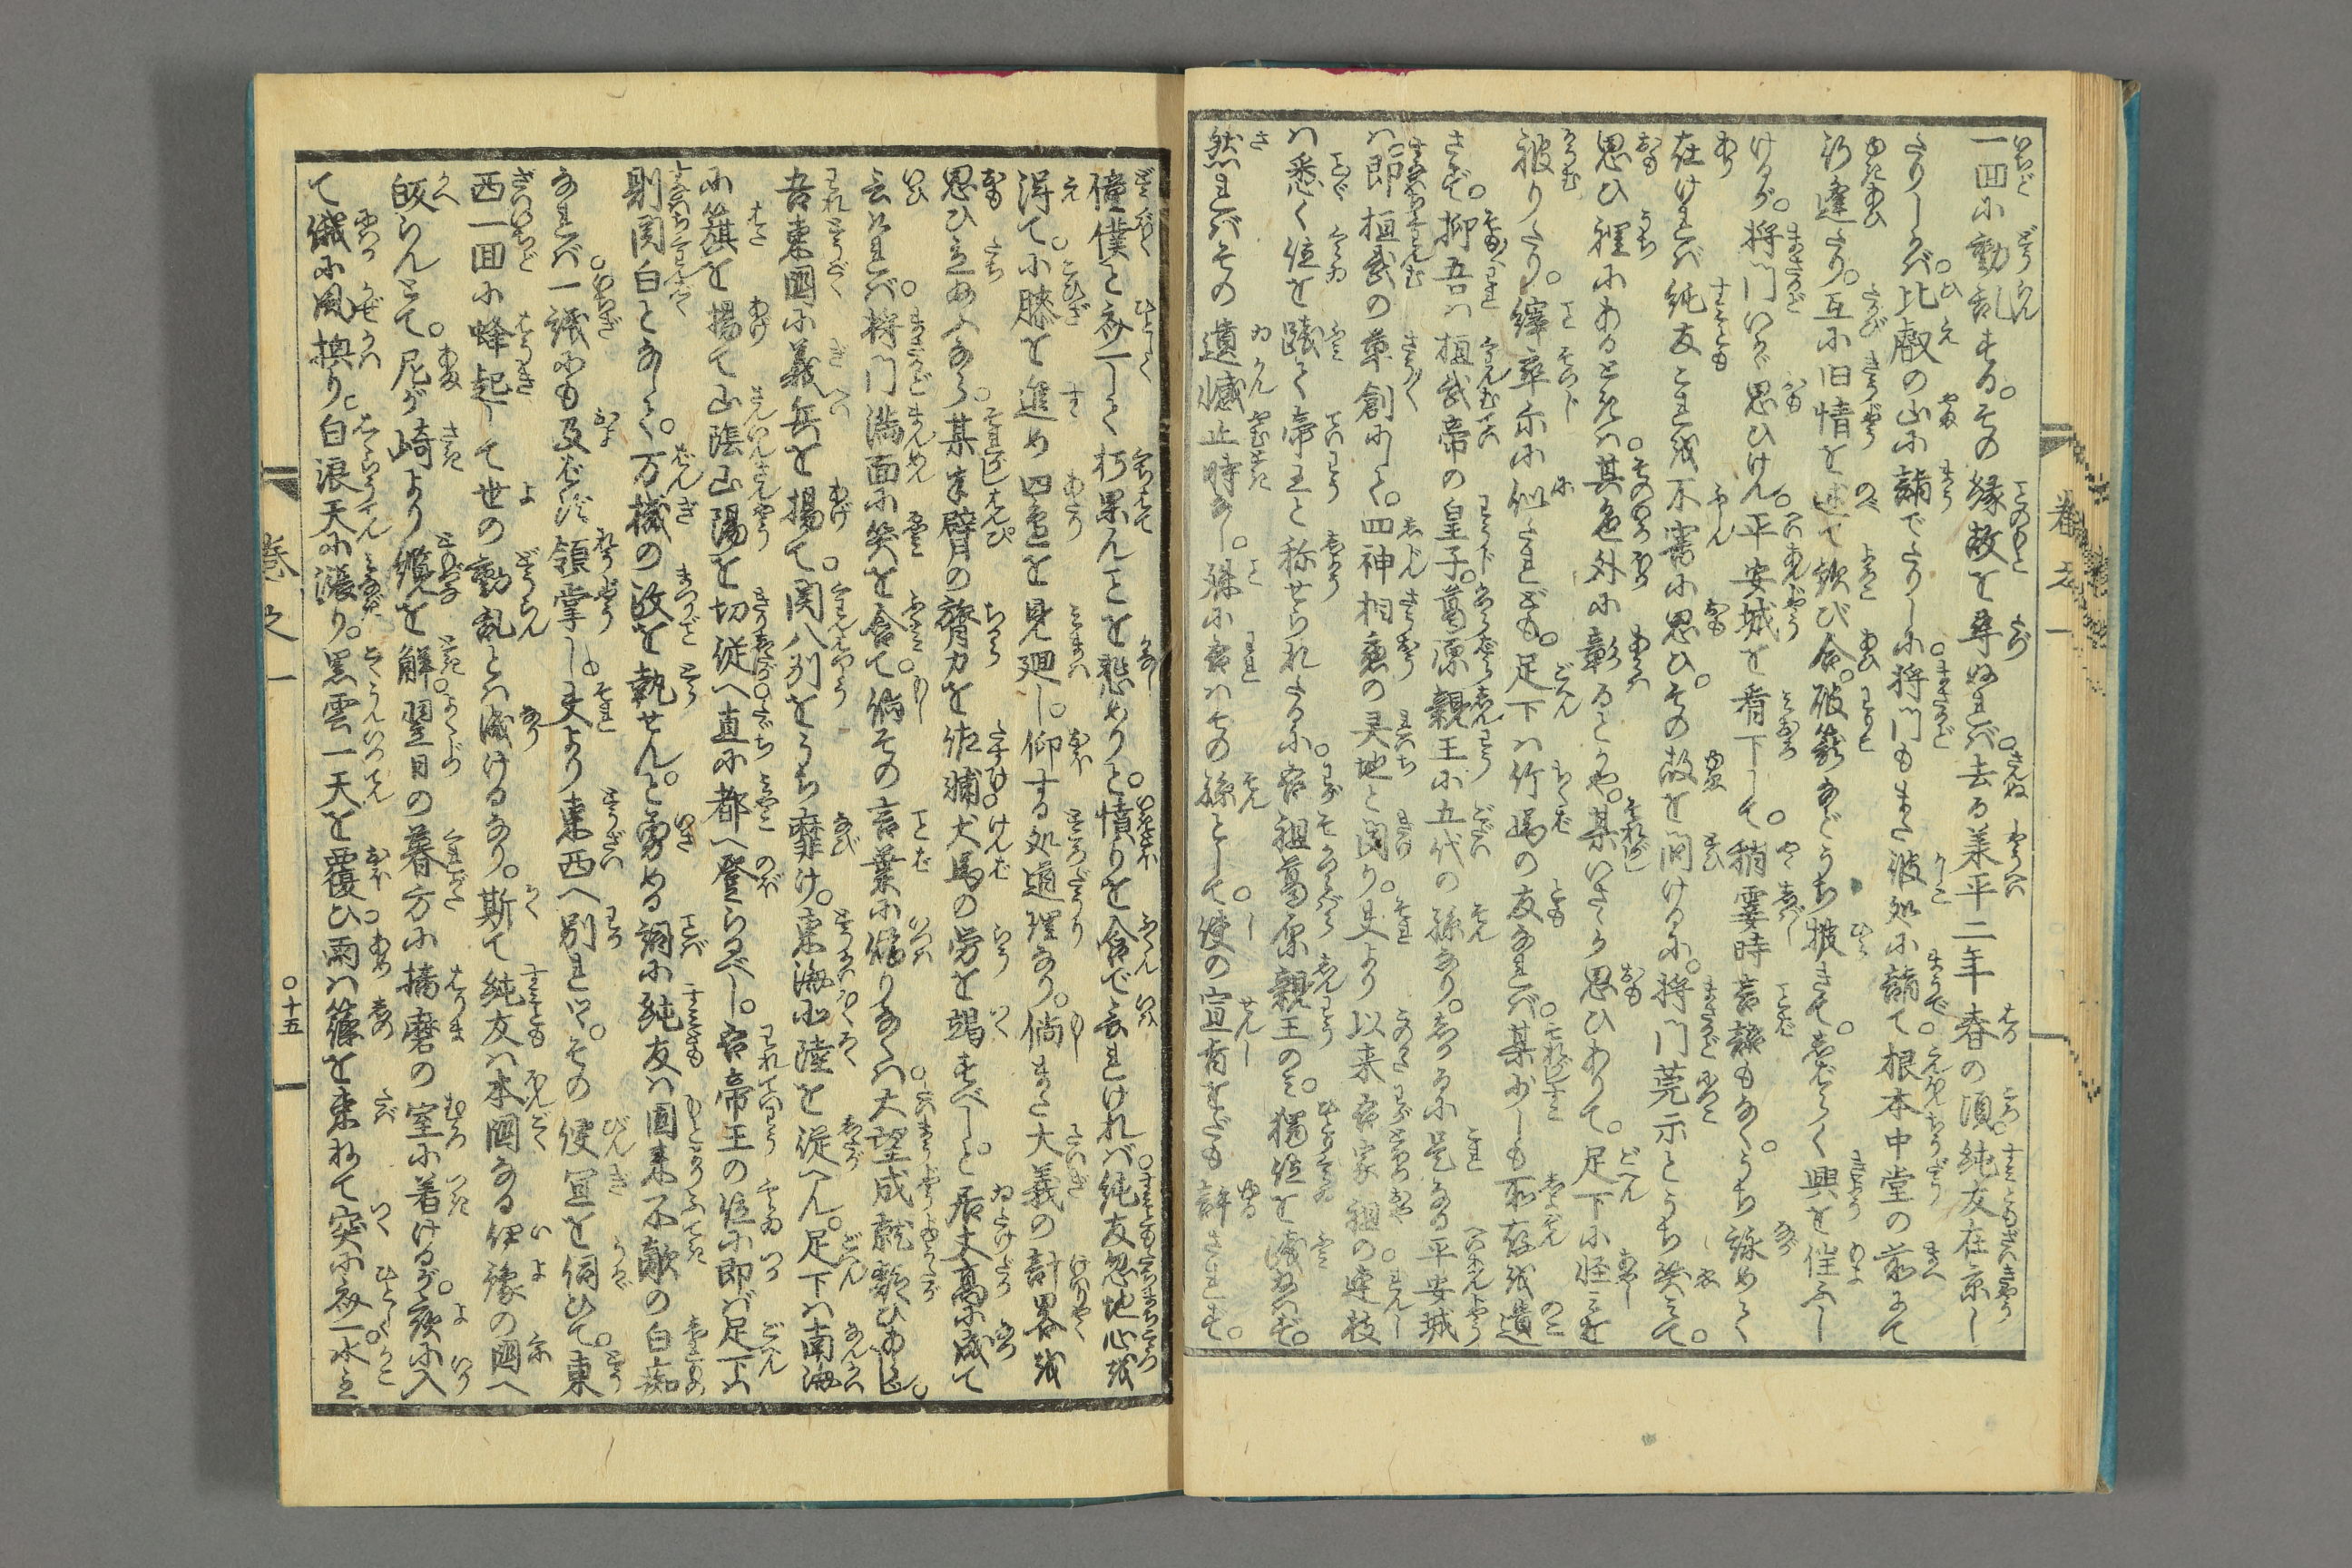 一回に動乱する。その縁故を尋ぬれば。去る承平二年春の頃。純友在京し
たりしかば。比叡の山に詣でたりしに。将門もまた彼処に詣て。根本中堂の前にて
行逢たり。互に旧情を述て歓び合。破籠などうち披きて。しばらく興を催ふし
けるが。将門いかゞ思ひけん。平安城を看下して。稍霎時言語もなく。うち詠めて
在ければ純友これを不審に思ひ。その故を問けるに。将門莞示とうち笑て。
思ひ裡にあるときは。其色外に彰るとかや。某いさゝか思ひありて。足下に怪しを
被りたり。緯卒尓に似たれども。足下は竹馬の友なれば。某少しも所存を遺
さず。抑吾は桓武帝の皇子。葛原親王が五代の孫なり。しかるに是なる平安城
は。即桓武の草創にして。四神相應の灵地と聞り。夫より以来吾家祖の連枝
は悉く位を踐て帝王と称せられたるに。吾祖葛原親王のみ。獨位を践給はず。
然ればその遺憾止時なし。殊に吾はその孫として。使の宣旨をだも許されず。
僮僕と斉しく朽果んことを愁めりと。憤りを含で云れければ。純友忽地心を
得て。小膝を進め四邊を見廻し。仰する処道理なり。倘また大義の計畧を
思ひ立給ふなら。某半臂の膂力を佐補。犬馬の労を竭すべしと。居丈高に成て
云ければ。将門満面に笑を含て。倘その言葉に偽りなくは。大望成就疑ひあらじ。
吾東國に義兵を揚て。関八州をうち靡け。東海北陸を従へん。足下は南海
に籏を揚て山陰山陽を切従へ。直に都へ登らるべし。吾帝王の位に即ば足下は
則関白となして。万機の政を執せんと。勇める詞に純友は。固来不敵の白痴
なれば。一議にも及ばず領掌し。夫より東西へ別れつゝ。その便宜を伺ひて。東
西一回に蜂起して世の動乱とは成けるなり。斯て純友は本國なる伊豫の國へ
皈らんとて。尼が崎より纜を解。翌日の暮方に播磨の室に着けるが。夜に入
て俄に風換り。白浪天に漲り。黒雲一天を覆ひ。雨は篠を束ねて突に斉。水主
巻之一
巻之一
○十五